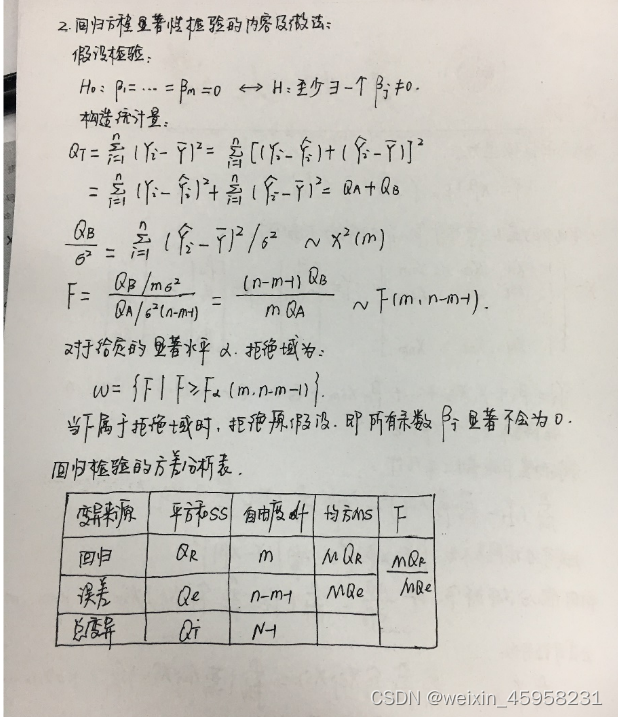 2.回归方程显著性检验的内容及做法:
假设检验:
H₀: β₁=⋯=βm=0 ↔ H: 至少∃一个 βj≠0.
构造统计量:
QT = Σ_{i=1}^{n} (Yi-Ȳ)² = Σ_{i=1}^{n} [(Yi-Ŷi)+(Ŷi-Ȳ)]²
= Σ_{i=1}^{n} (Yi-Ŷi)² + Σ_{i=1}^{n} (Ŷi-Ȳ)² = QA+QB
QB/σ² = Σ_{i=1}^{n} (Ŷi-Ȳ)²/σ² ~ χ²(m)
F = (QB/mσ²)/(QA/σ²(n-m-1)) = (n-m-1)QB/(mQA) ~ F(m, n-m-1).
对于给定的显著水平 α. 拒绝域为:
ω={F | F≥Fα(m,n-m-1)}.
当F属于拒绝域时, 拒绝原假设. 即所有系数 βj 显著不会为0.
回归检验的方差分析表.
变异来源 平方和SS 自由度df 均方MS F
回归 QR m MQR MQR/MQe
误差 Qe n-m-1 MQe
总变异 QT N-1
CSDN @weixin_45958231